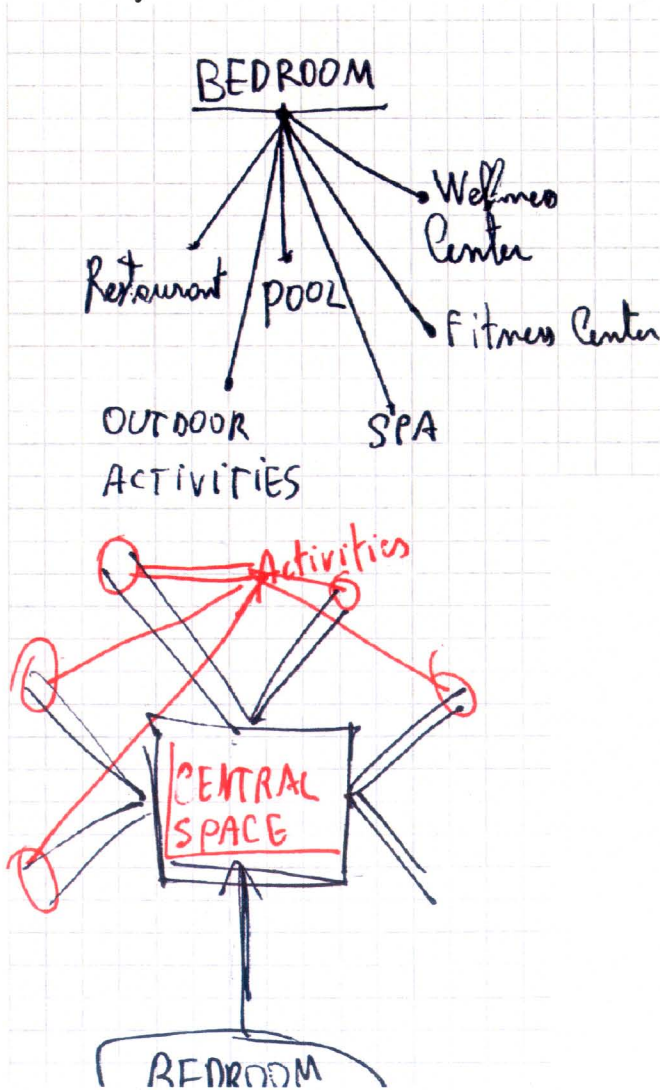 BEDROOM
Wellness
Center
Restaurant
POOL
Fitness Center
OUTDOOR
SPA
ACTIVITIES
Activities
CENTRAL
SPACE
BEDROOM